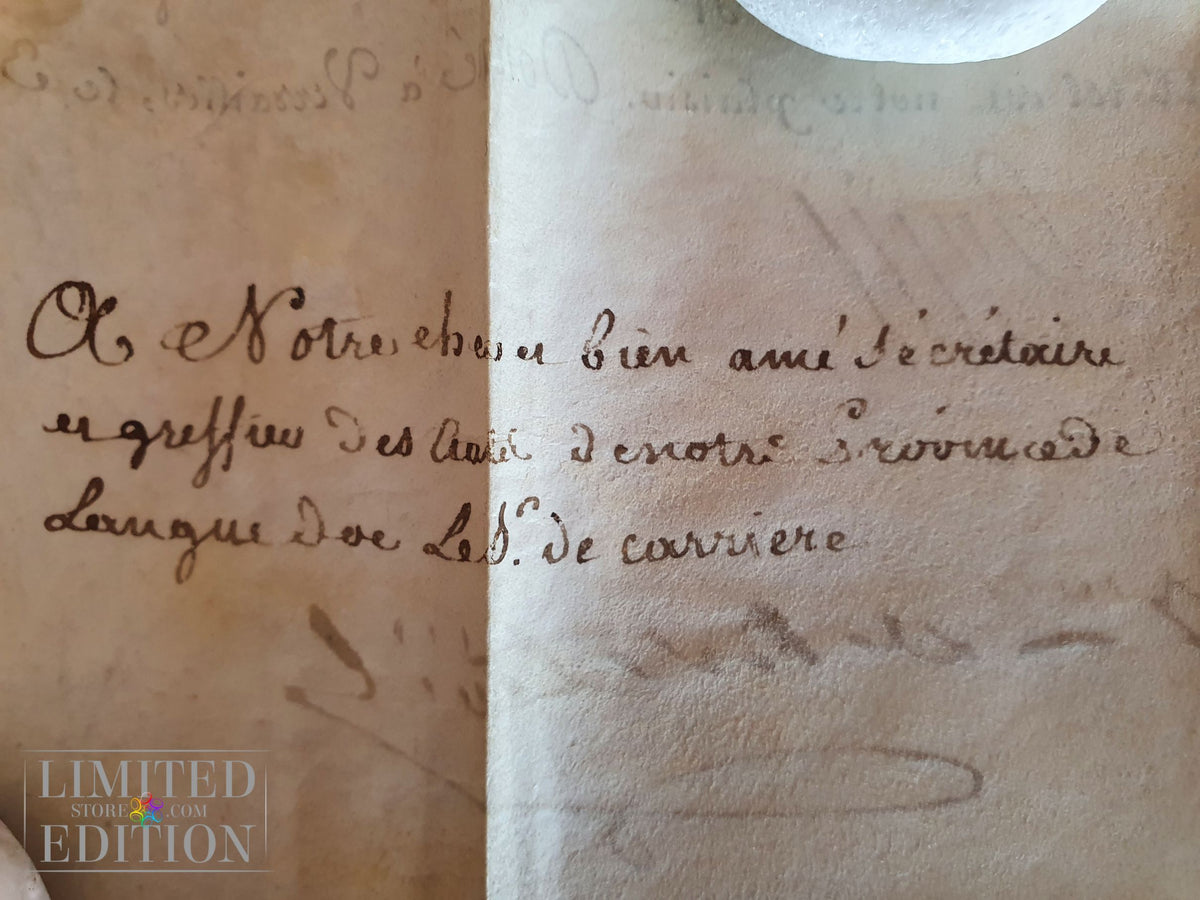 A Notre cher et bien amé sécrétaire
et greffier des Etats de notre Province de
Langue doc Le S.r de carriere
LIMITED
STORE .COM
EDITION